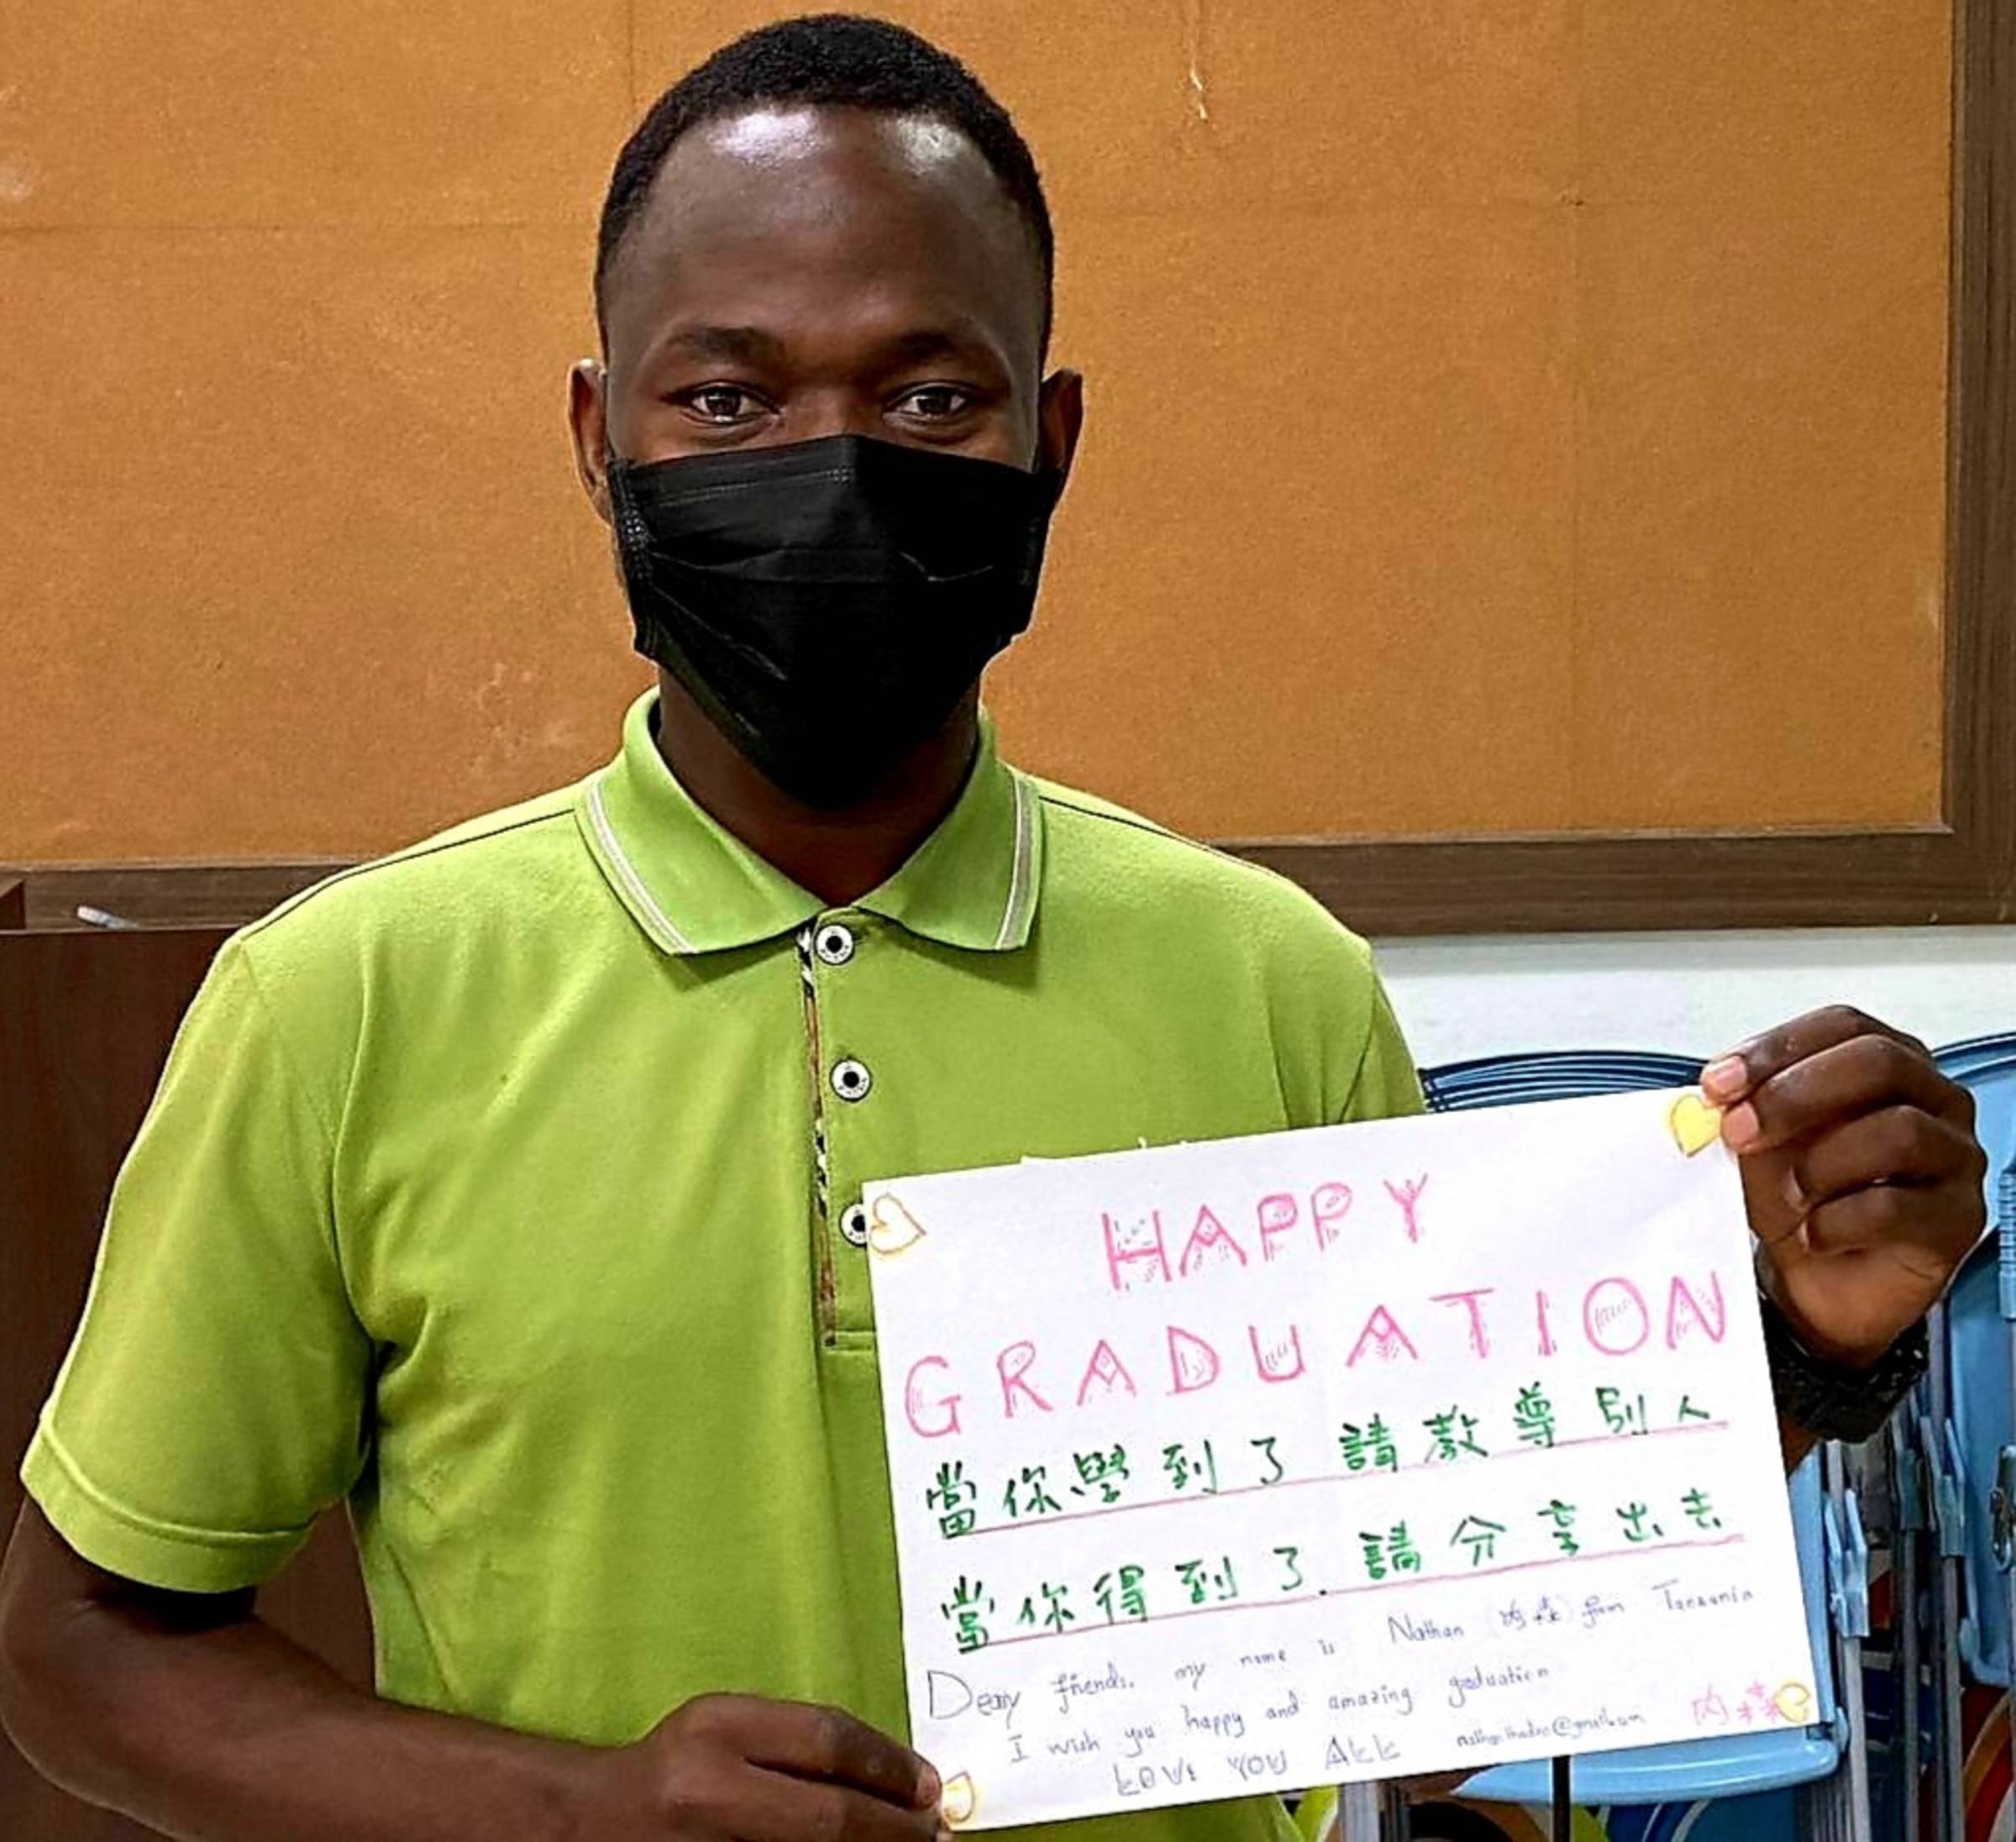 HAPPY
GRADUATION
當你學到了請教導別人
當你得到了.請分享出去
Deary friends, my name is Nathan (內森) from Tanzania
I wish you happy and amazing graduation
LOVE YOU ALL
內森